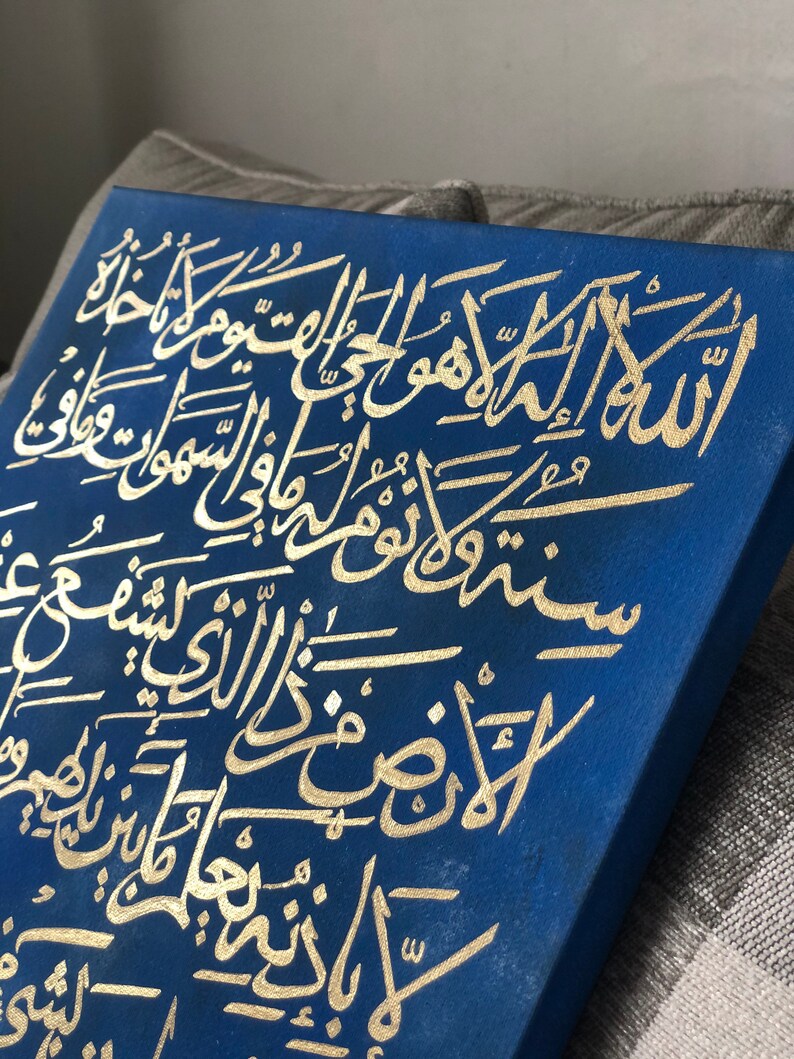 ٱللَّهُ لَآ إِلَٰهَ إِلَّا هُوَ الْحَيُّ الْقَيُّومُ لَا تَأْخُذُهُ
سِنَةٌ وَلَا نَوْمٌ لَهُ مَا فِي السَّمَوَاتِ وَمَا فِي
الْأَرْضِ مَنْ ذَا الَّذِي يَشْفَعُ
إِلَّا بِإِذْنِهِ يَعْلَمُ مَا بَيْنَ أَيْدِيهِمْ
بِشَيْءٍ